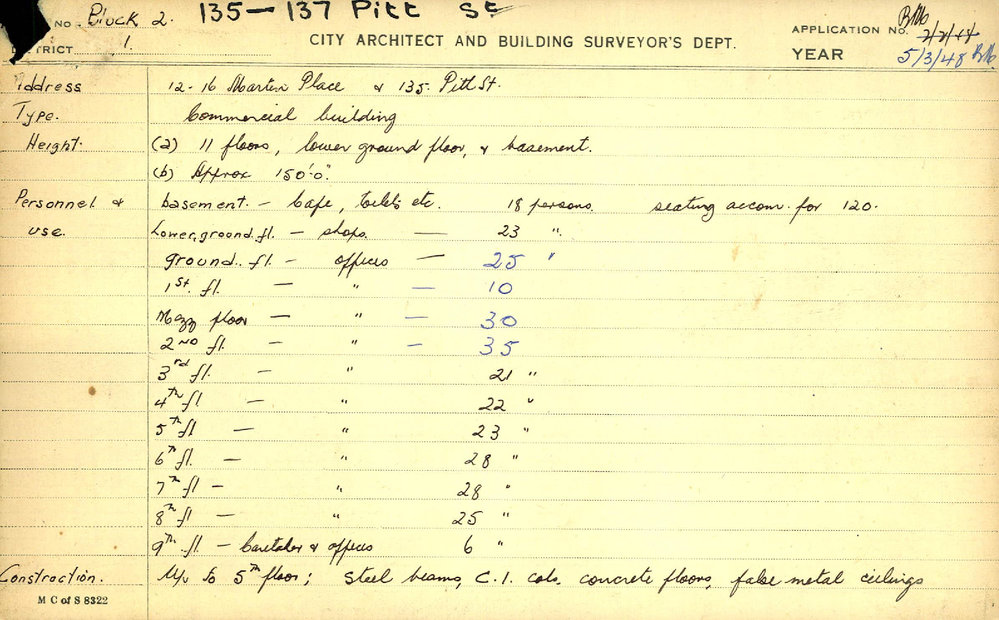 NO. Block 2. 135-137 Pitt St
DISTRICT 1.
CITY ARCHITECT AND BUILDING SURVEYOR'S DEPT.
APPLICATION NO.
YEAR 5/3/48
Address 12-16 Martin Place & 135 Pitt St.
Type. Commercial building
Height. (a) 11 floors, lower ground floor, & basement.
(b) Approx 150'.0".
Personnel & basement. - Cafe, toilets etc. 18 persons. seating accom. for 120.
use. Lower ground fl. - shops. — 23 ".
ground. fl. - offices — 25 "
1st. fl. — " — 10
Mezz floor — " — 30
2ND fl. — " — 35
3rd fl. — " 21 "
4th fl — " 22 "
5th fl — " 23 "
6th fl. — " 28 "
7th fl — " 28 "
8th fl — " 25 "
9th. fl. - Caretaker & offices 6 "
Construction. Up to 5th floor; steel beams, C.I. cols. concrete floors, false metal ceilings
M C of S 8322